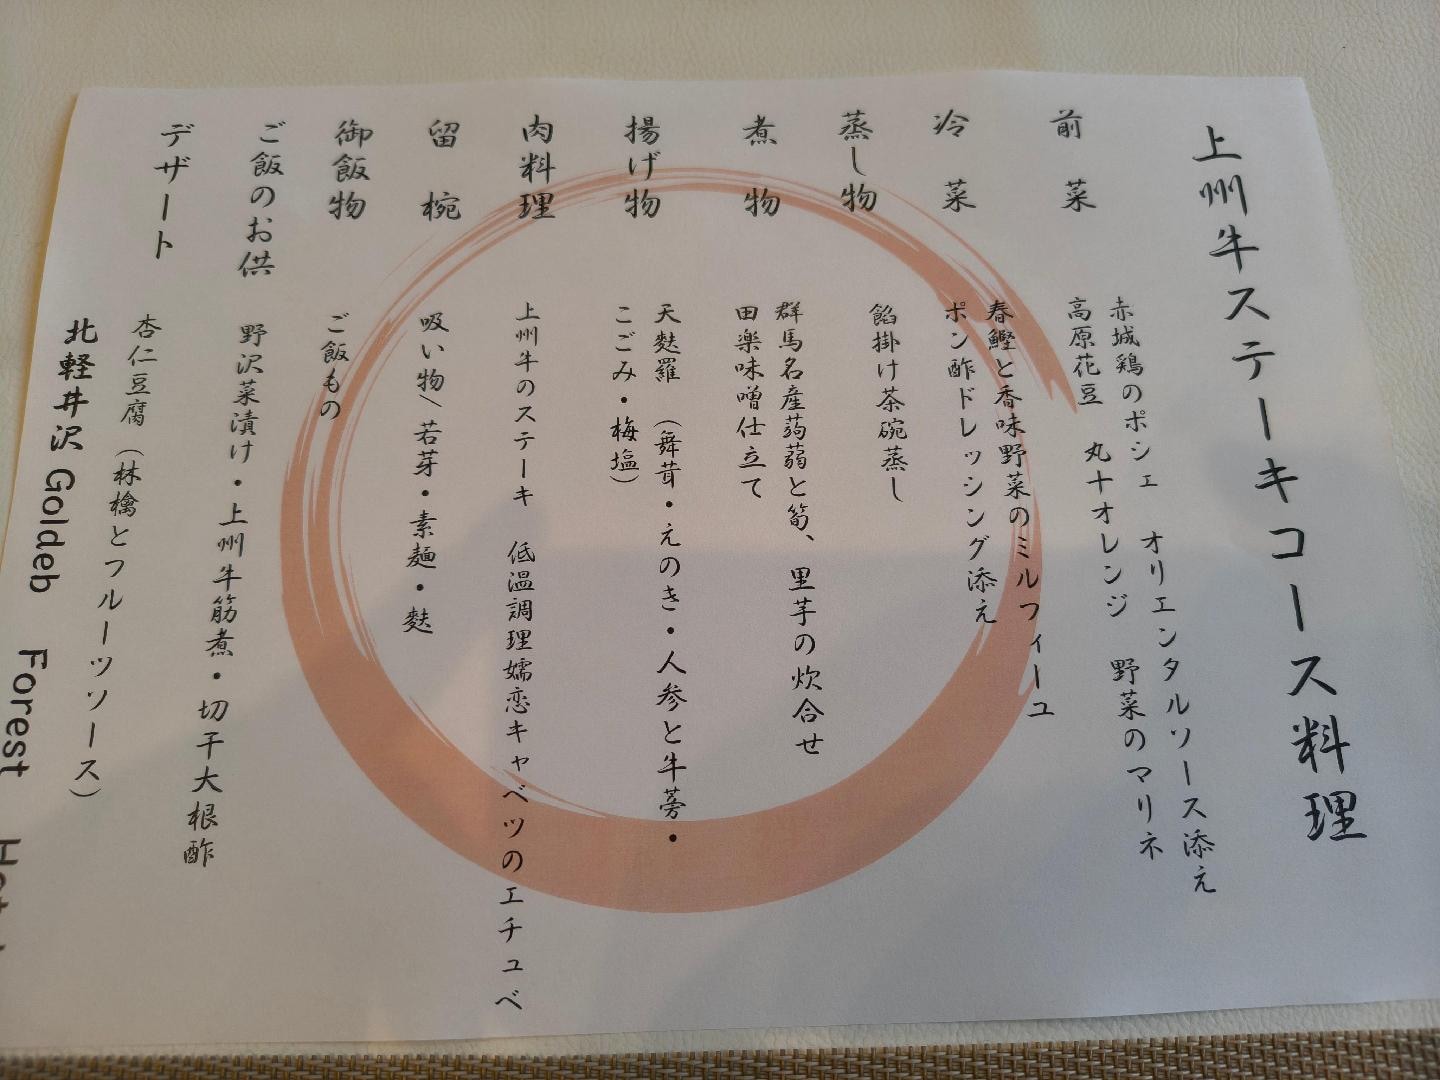 上州牛ステーキコース料理
前菜
赤城鶏のポシェ オリエンタルソース添え
高原花豆 丸十オレンジ 野菜のマリネ
冷菜
春鰹と香味野菜のミルフィーユ
ポン酢ドレッシング添え
蒸し物
餡掛け茶碗蒸し
煮物
群馬名産蒟蒻と筍、里芋の炊合せ
田楽味噌仕立て
揚げ物
天麩羅 (舞茸・えのき・人参と牛蒡・
こごみ・梅塩)
肉料理
上州牛のステーキ 低温調理嬬恋キャベツのエチュベ
留椀
吸い物\若芽・素麺・麩
御飯物
ご飯もの
ご飯のお供
野沢菜漬け・上州牛筋煮・切干大根酢
デザート
杏仁豆腐 (林檎とフルーツソース)
北軽井沢 Goldeb
Forest